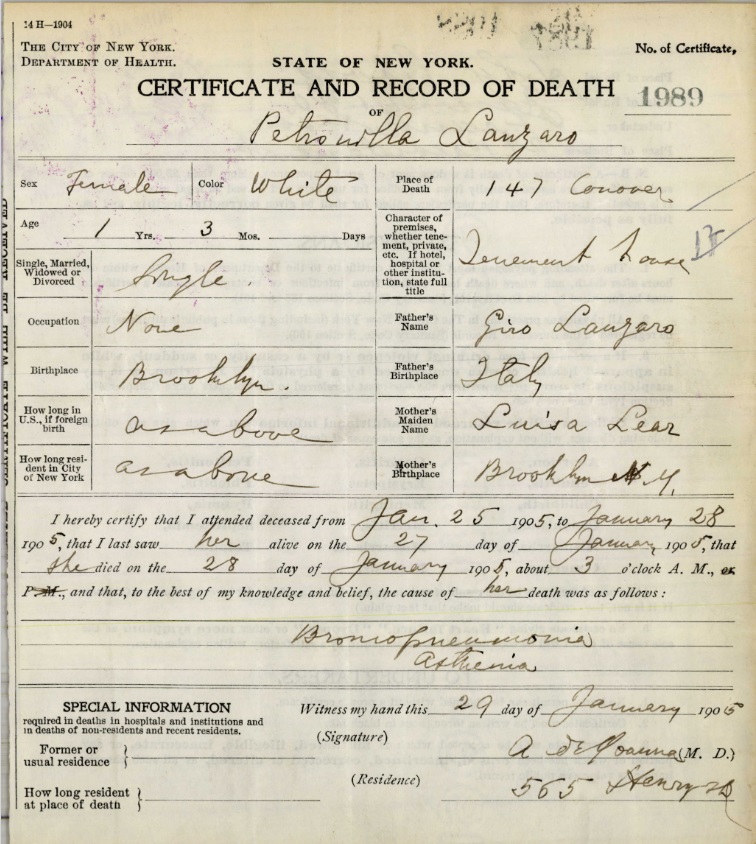 14 H—1904
THE CITY OF NEW YORK.
DEPARTMENT OF HEALTH.
STATE OF NEW YORK.
No. of Certificate,
CERTIFICATE AND RECORD OF DEATH
1989
OF
Petronilla Lanzaro
Sex Female Color White
Place of Death 147 Conover
Age 1 Yrs. 3 Mos. Days
Character of premises, whether tenement, private, etc. If hotel, hospital or other institution, state full title Tenement house
Single, Married, Widowed or Divorced Single.
Occupation None
Father's Name Giro Lanzaro
Birthplace Brooklyn.
Father's Birthplace Italy
How long in U.S., if foreign birth as above
Mother's Maiden Name Luisa Lear
How long resident in City of New York as above
Mother's Birthplace Brooklyn N.Y.
I hereby certify that I attended deceased from Jan. 25 1905, to January 28
1905, that I last saw her alive on the 27 day of January 1905, that
she died on the 28 day of January 1905, about 3 o'clock A. M., or
P. M., and that, to the best of my knowledge and belief, the cause of her death was as follows:
Broncopneumonia
Asthenia
SPECIAL INFORMATION
required in deaths in hospitals and institutions and
in deaths of non-residents and recent residents.
Former or usual residence
How long resident at place of death
Witness my hand this 29 day of January 1905
(Signature) A (M. D.)
(Residence) 565 Henry St